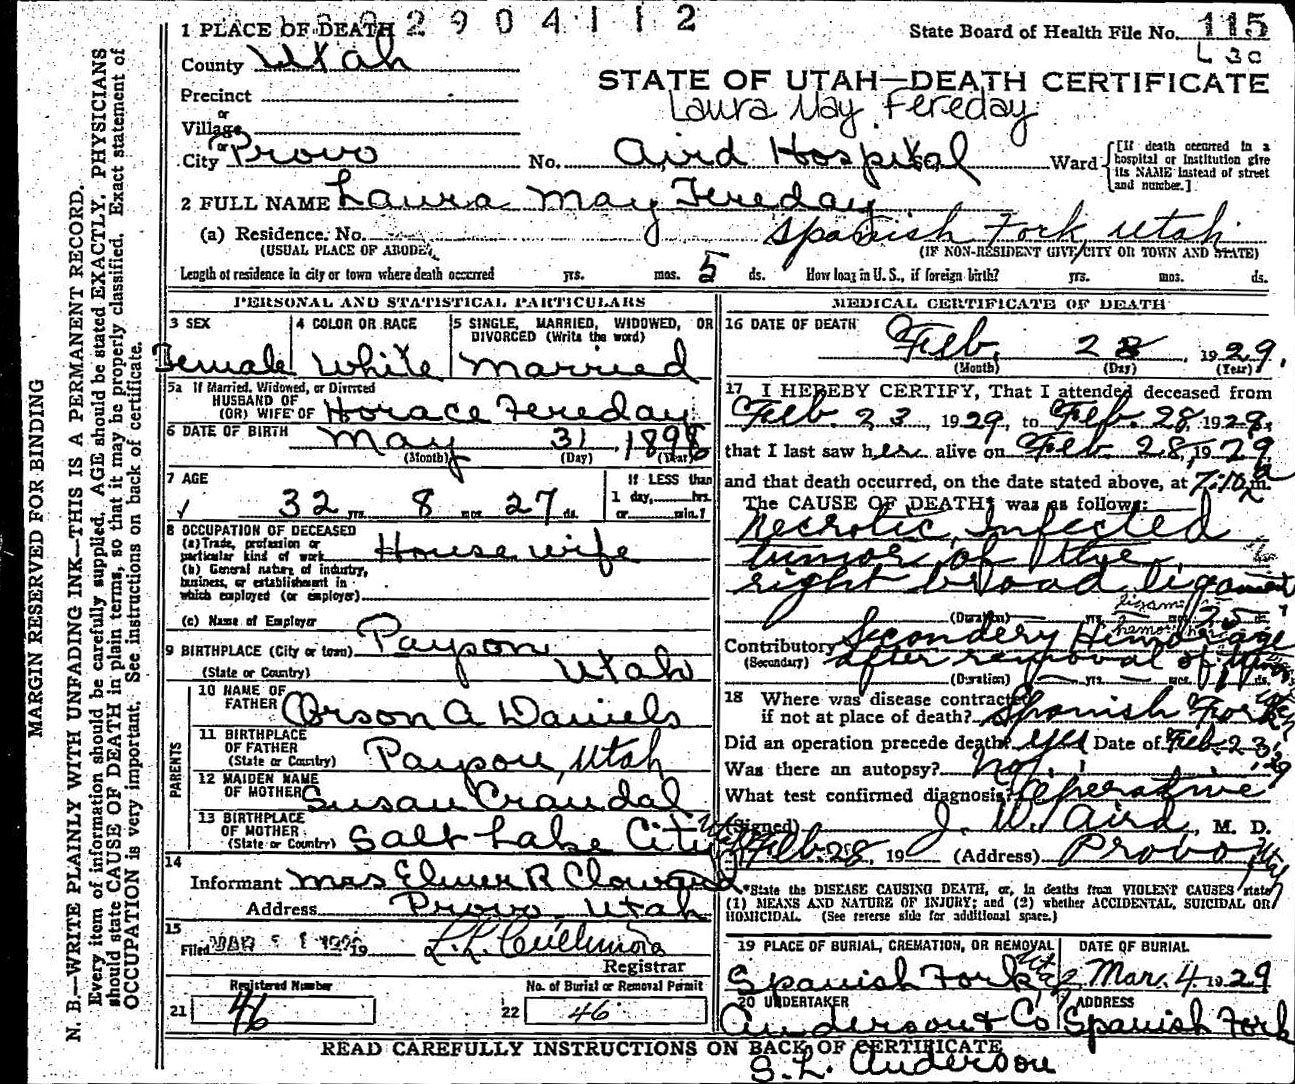 2904112
1 PLACE OF DEATH
State Board of Health File No. 115
L 30
County Utah
STATE OF UTAH—DEATH CERTIFICATE
Precinct
Laura May Fereday
or
Village
or
City Provo No. Aird Hospital St. Ward [If death occurred in a hospital or institution give its NAME instead of street and number.]
2 FULL NAME Laura May Fereday
(a) Residence. No. Spanish Fork, Utah
(USUAL PLACE OF ABODE) (IF NON-RESIDENT GIVE CITY OR TOWN AND STATE)
Length of residence in city or town where death occurred yrs. mos. 5 ds. How long in U. S., if foreign birth? yrs. mos. ds.
PERSONAL AND STATISTICAL PARTICULARS
3 SEX
Female
4 COLOR OR RACE
White
5 SINGLE, MARRIED, WIDOWED, OR DIVORCED (Write the word)
Married
5a If Married, Widowed, or Divorced
HUSBAND OF
(OR) WIFE OF Horace Fereday
6 DATE OF BIRTH May 31, 1896
(Month) (Day) (Year)
7 AGE
32 yrs. 8 mos. 27 ds.
If LESS than
1 day, hrs.
or min.?
8 OCCUPATION OF DECEASED
(a) Trade, profession or
particular kind of work Housewife
(b) General nature of industry,
business, or establishment in
which employed (or employer)
(c) Name of Employer
9 BIRTHPLACE (City or town) Payson
(State or Country) Utah
PARENTS
10 NAME OF
FATHER Orson A Daniels
11 BIRTHPLACE
OF FATHER
(State or Country) Payson, Utah
12 MAIDEN NAME
OF MOTHER Susan Crandal
13 BIRTHPLACE
OF MOTHER
(State or Country) Salt Lake City Utah
14
Informant Mrs Elmer R
Address Provo, Utah
15
Filed MAR 19
Registrar
Registered Number
21 46
No. of Burial or Removal Permit
22 46
MEDICAL CERTIFICATE OF DEATH
16 DATE OF DEATH
Feb. 28, 1929.
(Month) (Day) (Year)
17 I HEREBY CERTIFY, That I attended deceased from
Feb. 23, 1929, to Feb. 28, 1929,
that I last saw her alive on Feb. 28, 1929
and that death occurred, on the date stated above, at 7:10 m.
The CAUSE OF DEATH* was as follows:
Necrotic, Infected
tumor of the
right broad ligament
ligament
(Duration) yrs. mos. ds.
hemorrhage
Contributory Secondery
(Secondary) after removal of
(Duration) yrs. mos. ds.
18 Where was disease contracted
if not at place of death? Spanish Fork
Did an operation precede death? yes Date of Feb. 23, 29
Was there an autopsy? no.
What test confirmed diagnosis? Operative
(Signed) J. W. Aird, M. D.
Feb. 28, 19 (Address) Provo Utah
*State the DISEASE CAUSING DEATH, or, in deaths from VIOLENT CAUSES state
(1) MEANS AND NATURE OF INJURY; and (2) whether ACCIDENTAL, SUICIDAL OR
HOMICIDAL. (See reverse side for additional space.)
19 PLACE OF BURIAL, CREMATION, OR REMOVAL
Spanish Fork Utah
DATE OF BURIAL
Mar. 4 1929
20 UNDERTAKER
Anderson & Co
ADDRESS
Spanish Fork
READ CAREFULLY INSTRUCTIONS ON BACK OF CERTIFICATE
S. L. Anderson
MARGIN RESERVED FOR BINDING
N. B.—WRITE PLAINLY WITH UNFADING INK—THIS IS A PERMANENT RECORD.
Every item of information should be carefully supplied. AGE should be stated EXACTLY. PHYSICIANS
should state CAUSE OF DEATH in plain terms, so that it may be properly classified. Exact statement of
OCCUPATION is very important. See instructions on back of certificate.